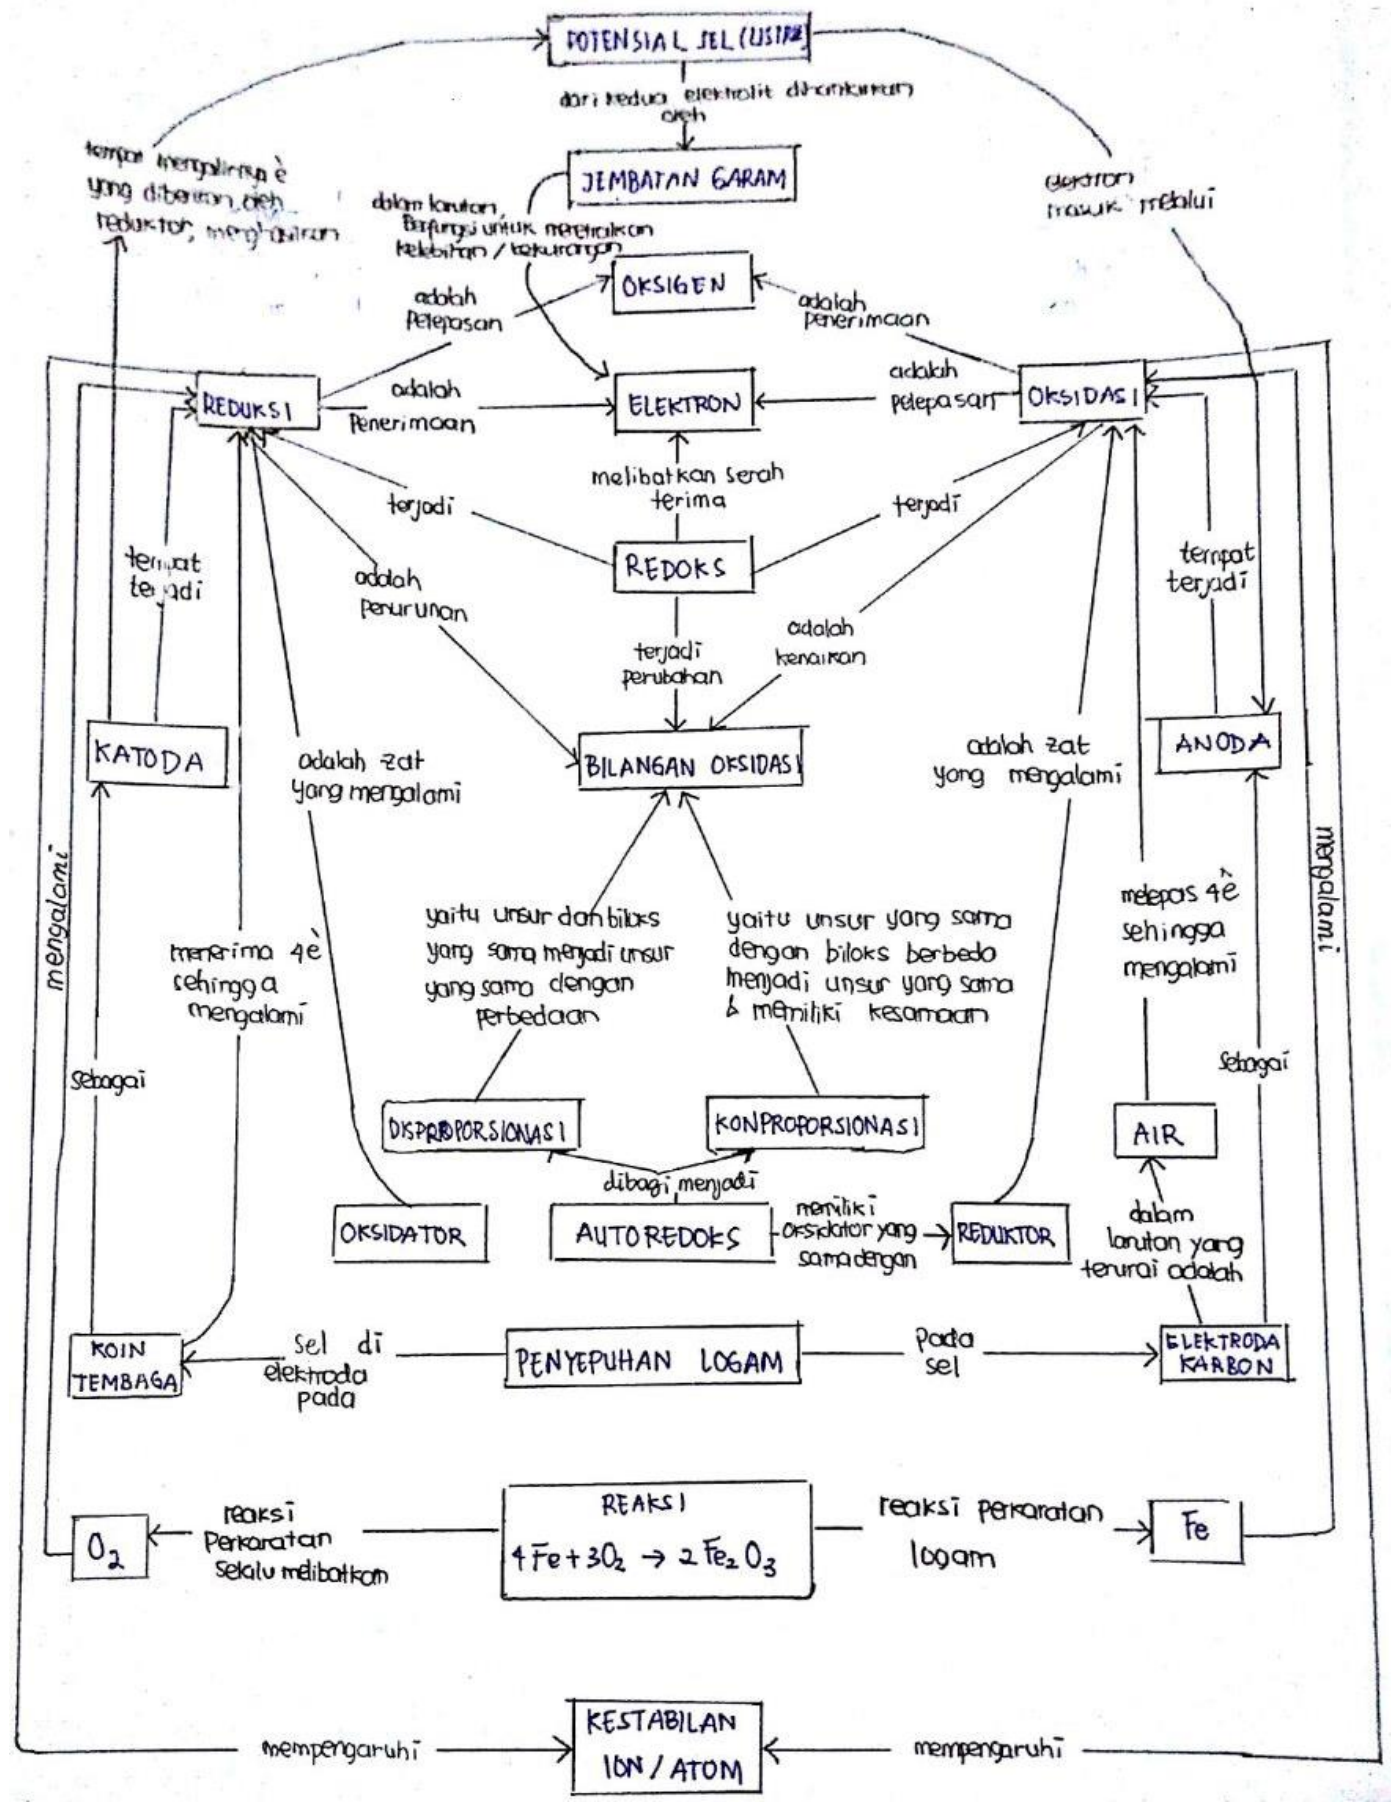 POTENSIAL SEL (LISTRIK)
dari kedua elektrolit dihantarkan
oleh
JEMBATAN GARAM
tempat mengalirnya è
yang diberikan oleh
reduktor, menghasilkan
dalam larutan,
Berfungsi untuk menetralkan
kelebihan / kekurangan
elektron
masuk melalui
OKSIGEN
adalah
Pelepasan
adalah
penerimaan
REDUKSI
adalah
Penerimaan
ELEKTRON
adalah
pelepasan
OKSIDASI
melibatkan serah
terima
terjadi
terjadi
REDOKS
tempat
terjadi
tempat
terjadi
adalah
penurunan
terjadi
perubahan
adalah
kenaikan
KATODA
BILANGAN OKSIDASI
ANODA
adalah zat
yang mengalami
adalah zat
yang mengalami
mengalami
mengalami
menerima 4è
sehingga
mengalami
yaitu unsur dan biloks
yang sama menjadi unsur
yang sama dengan
perbedaan
yaitu unsur yang sama
dengan biloks berbeda
menjadi unsur yang sama
& memiliki kesamaan
melepas 4è
sehingga
mengalami
sebagai
sebagai
DISPROPORSIONASI
KONPROPORSIONASI
AIR
dibagi menjadi
OKSIDATOR
AUTOREDOKS
memiliki
oksidator yang
sama dengan
REDUKTOR
dalam
larutan yang
terurai adalah
KOIN
TEMBAGA
sel di
elektroda
pada
PENYEPUHAN LOGAM
pada
sel
ELEKTRODA
KARBON
O₂
reaksi
Perkaratan
selalu melibatkan
REAKSI
4Fe + 3O₂ → 2 Fe₂O₃
reaksi perkaratan
logam
Fe
mempengaruhi
KESTABILAN
ION / ATOM
mempengaruhi